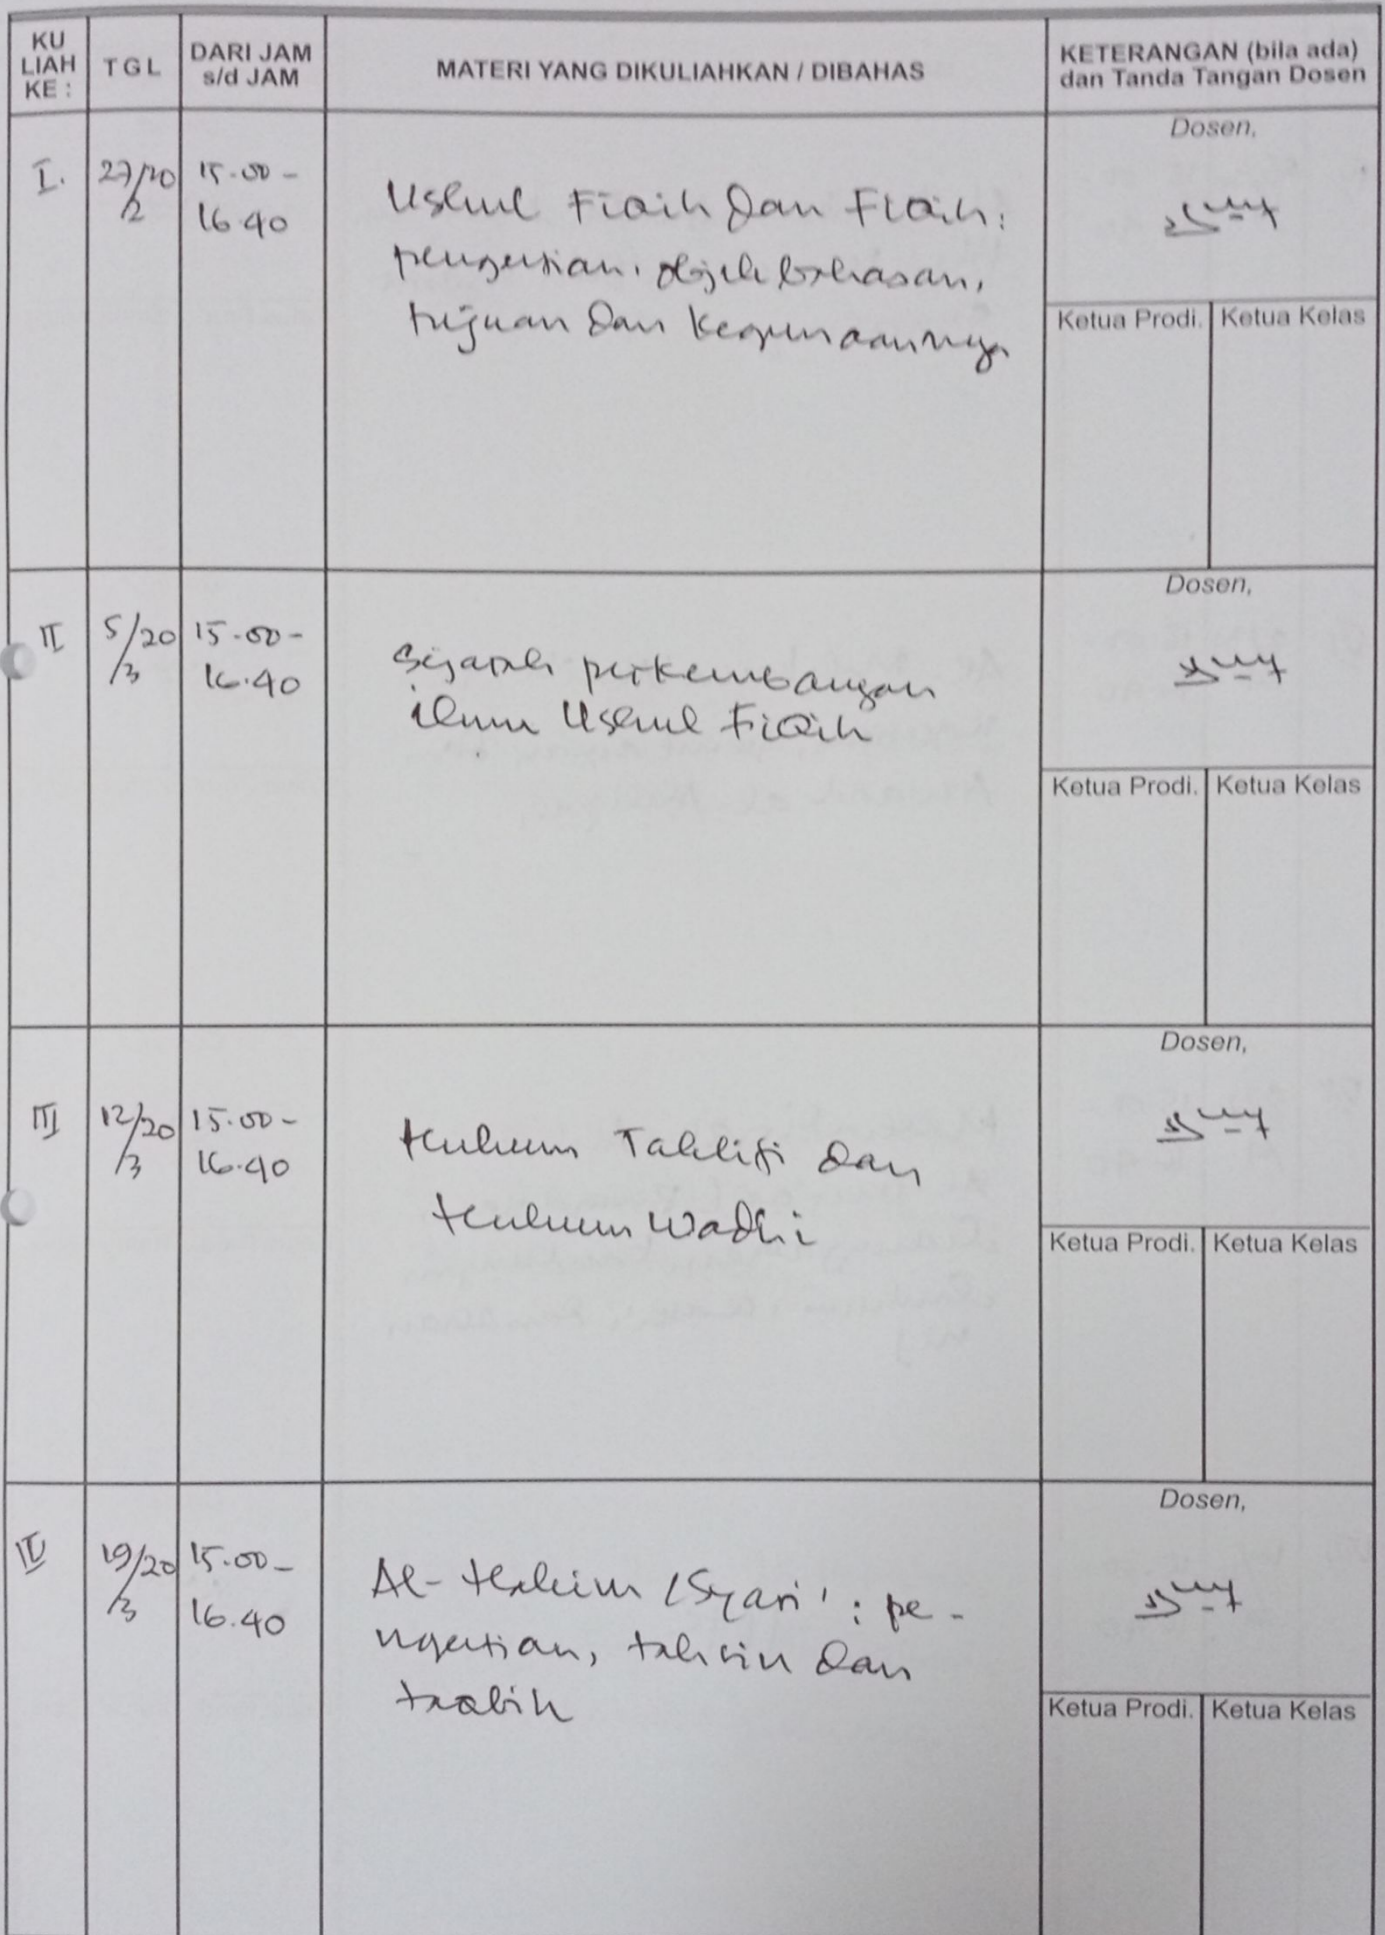 KU
LIAH
KE :
TGL
DARI JAM
s/d JAM
MATERI YANG DIKULIAHKAN / DIBAHAS
KETERANGAN (bila ada)
dan Tanda Tangan Dosen
I.
27/20
/2
15.00 -
16.40
Ushul Fiqih dan Fiqih :
pengertian, objek bahasan,
tujuan dan kegunaannya
Dosen,
Ketua Prodi. Ketua Kelas
II
5/20
/3
15.00 -
16.40
Sejarah perkembangan
ilmu Ushul Fiqih
Dosen,
Ketua Prodi. Ketua Kelas
III
12/20
/3
15.00 -
16.40
Hukum Taklifi dan
Hukum Wadhi
Dosen,
Ketua Prodi. Ketua Kelas
IV
19/20
/3
15.00 -
16.40
Al-Hakim /Syari' : pe -
ngertian, tahsin dan
taqbih
Dosen,
Ketua Prodi. Ketua Kelas